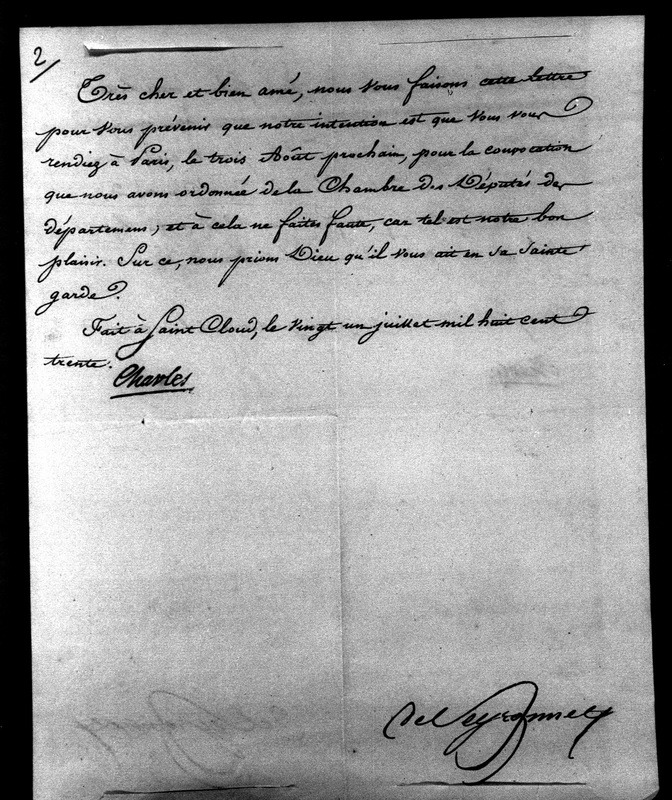 2/
Très cher et bien amé, nous vous faisons cette lettre
pour vous prévenir que notre intention est que vous vous
rendiez à Paris, le trois Août prochain, pour la convocation
que nous avons ordonnée de la Chambre des Députés des
départemens, et à cela ne faites faute, car tel est notre bon
plaisir. Sur ce, nous prions Dieu qu'il vous ait en sa sainte
garde.
Fait à Saint Cloud, le vingt un juillet mil huit cent
trente.
Charles
de Peyronnet